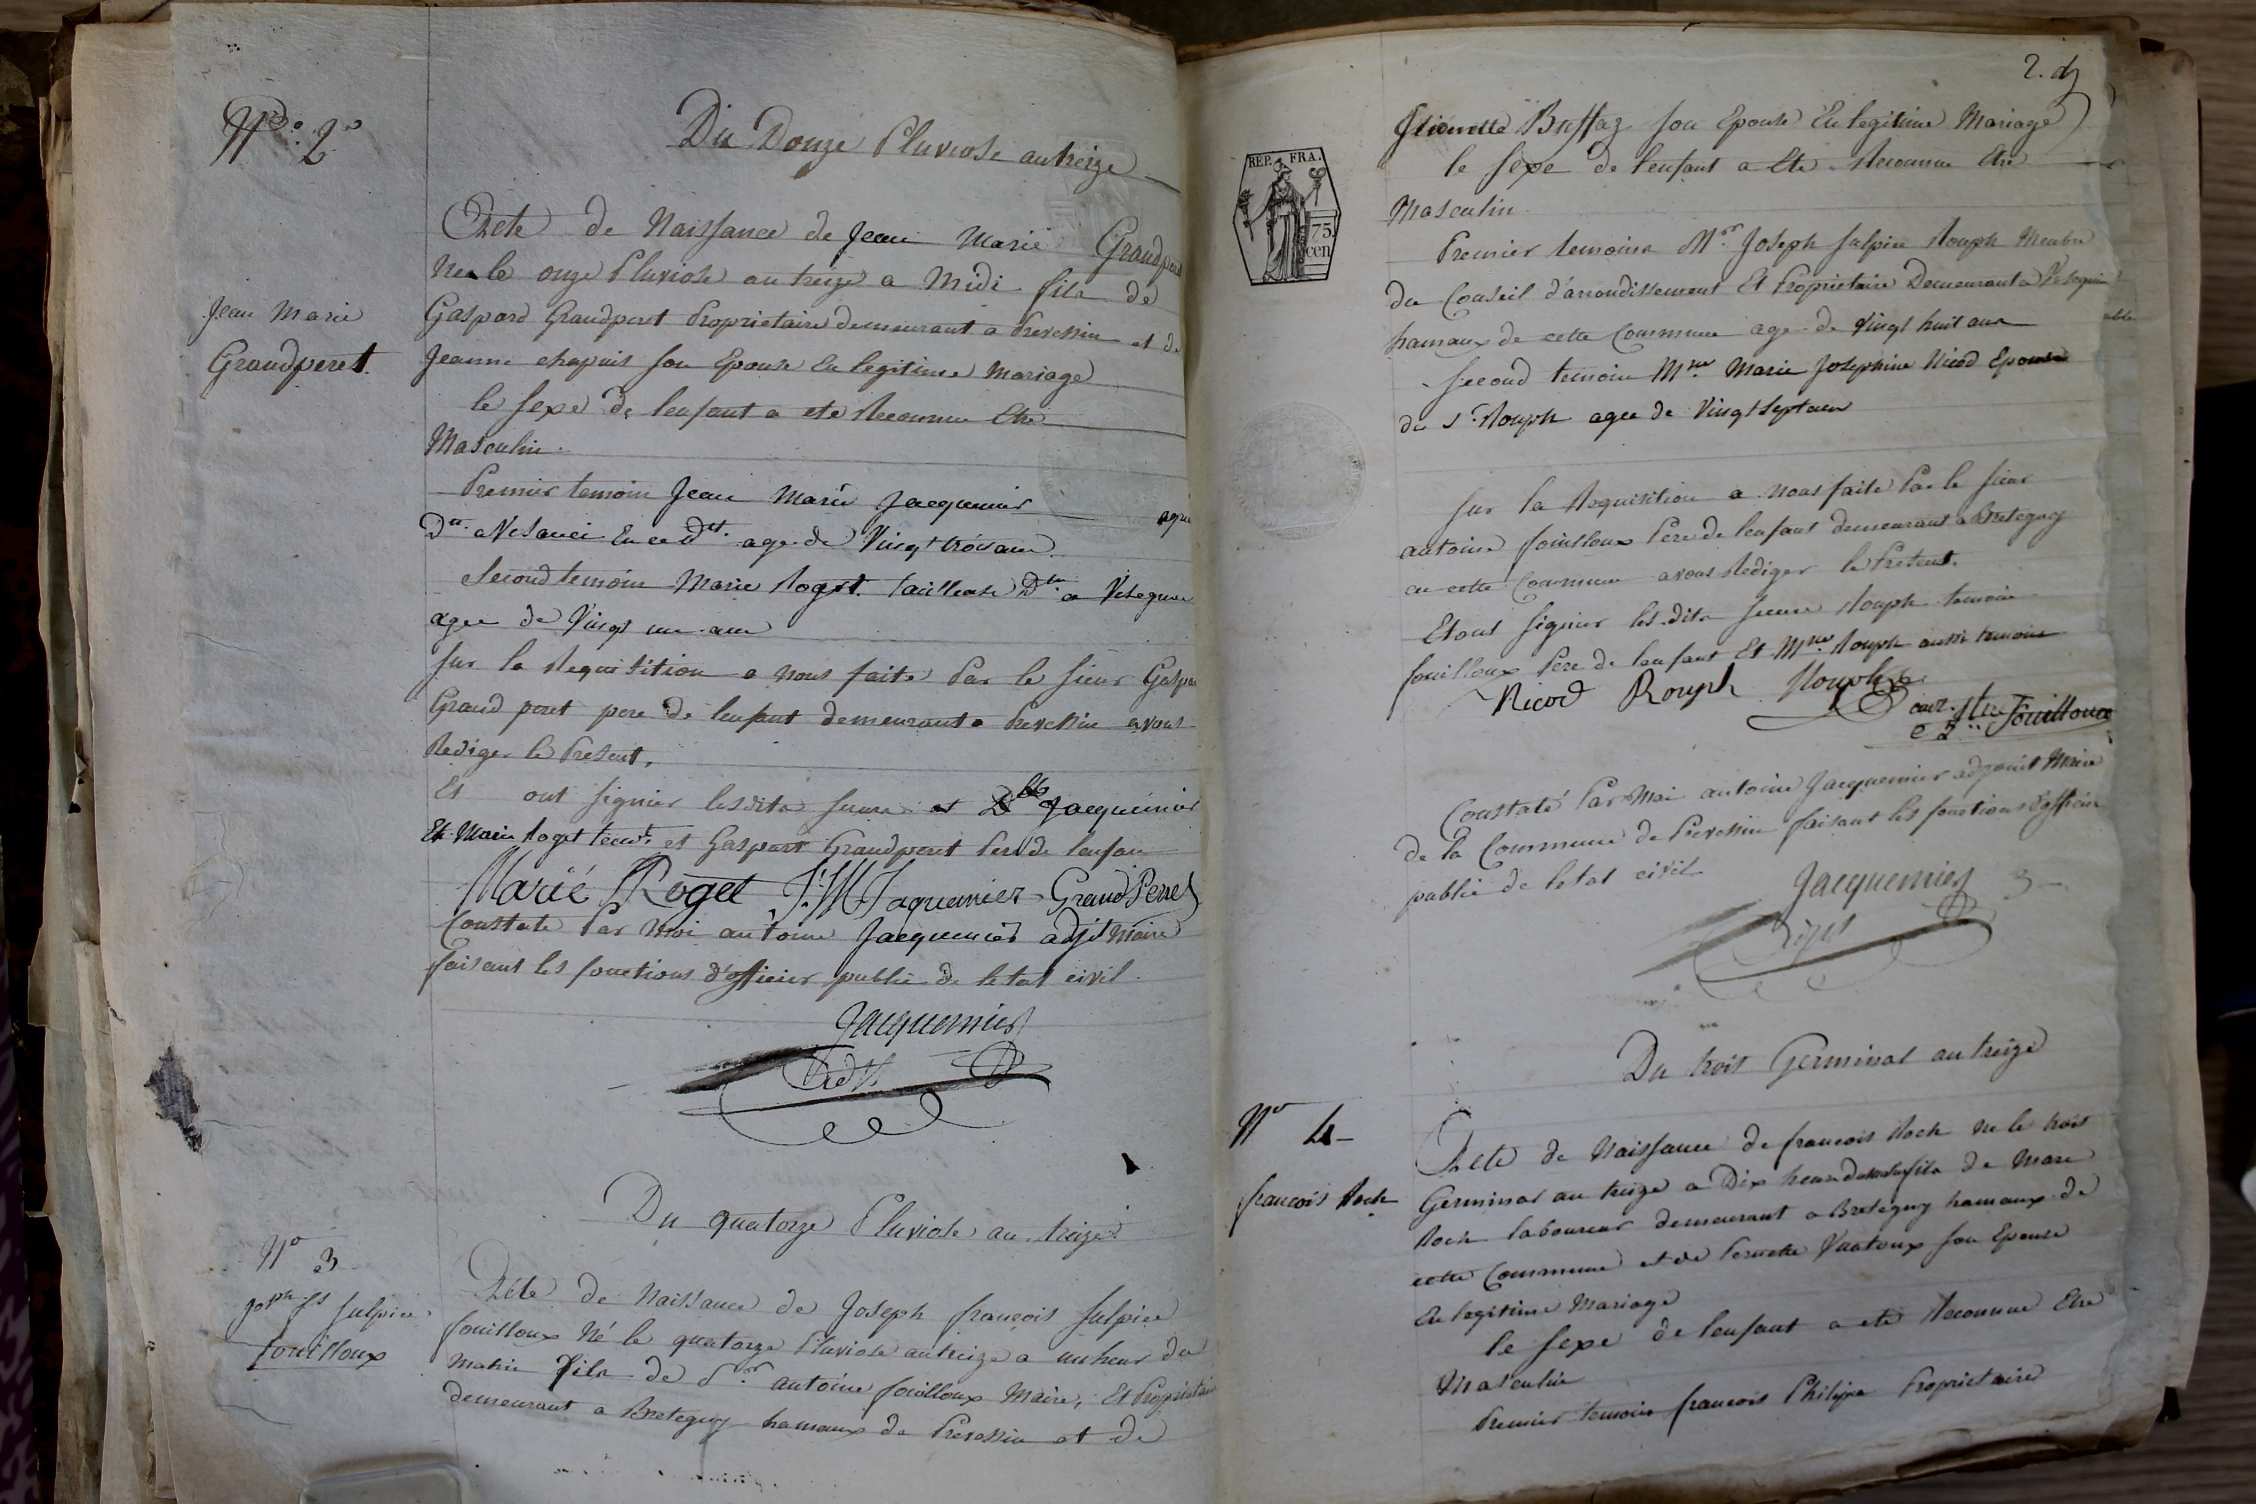 No. 2.
Du Douze Pluviose an treize
Acte de Naissance de Jean Marie Grandperet
Né le onze Pluviose an treize a Midi fils de
Jean Marie
Grandperet
Gaspard Grandperet Proprietaire demeurant a Prevessin et de
Jeanne chapuis son Epouse En legitime Mariage
le sexe de lenfant a ete Reconnu Etre
Masculin.
Premier temoin Jean Marie Jacquemier
age de Vingt trois ans
Second temoin Marie Roget tailleuse Dte a Vesegnin
agee de Vingt un ans
Sur la Requisition a nous faite Par le sieur Gaspard
Grand peret pere de lenfant demeurant a Prevessin avons
Rediger le Present.
Et ont signier lesdits sieurs et Jacquemier
Et Marie Roget et Gaspart Grandperet Pere de lenfan
Marié Roget J. M Jaquemier Grand Perret
Constate Par Moi antoine Jacquemier adjt Maire
faisant les fonctions d'officier public de letat civil.
Jacquemier
adjt
Du quatorze Pluviose an treize
No 3
Josph fs Sulpice
fouilloux
Acte de Naissance de Joseph francois Sulpice
fouilloux Né le quatorze Pluviose an treize a un heur du
Matin fils de Sr antoine fouilloux Maire, Et Proprietaire
demeurant a Bretegny hamaux de Prevessin et de
2. d
Buffaz son Epouse En legitime Mariage
le sexe de lenfant a Ete Reconnu Etre
Masculin
REP. FRA.
75.
cen
Premier temoins Mr Joseph Sulpice Rouph Membre
du Conseil d'arrondissement Et Proprietaire Demeurant a Vesegnin
hamaux de cette Commune age de Vingt huit ans
Second temoin Mme Marie Josephine Nicod Epouse
du Sr Rouph agee de Vingt Sept ans
Sur la Requisition a nous faite Par le sieur
antoine fouilloux Pere de lenfant demeurant a Bretegny
en cette Commune avons Rediger le Present.
Et ont signier les dits sieurs Rouph temoin
fouilloux Pere de lenfant Et Mme Rouph aussi temoin
Nicod Rouph Rouph
fouilloux
Constaté Par Moi antoine Jacquemier adjoint Maire
de la Commune de Prevessin faisant les fonctions d'officier
public de letat civil
Jacquemier
adjt
Du trois Germinal an treize
No 4
francois Roch
Acte de Naissance de francois Roch Né le trois
Germinal an treize a Dix heures fils de Marc
Roch laboureur demeurant a Bretegny hamaux de
cette Commune et de Pernette Vautoux son Epouse
En legitime Mariage
le sexe de lenfant a ete Reconnu Etre
Masculin
Premier temoin francois Philippe Proprietaire